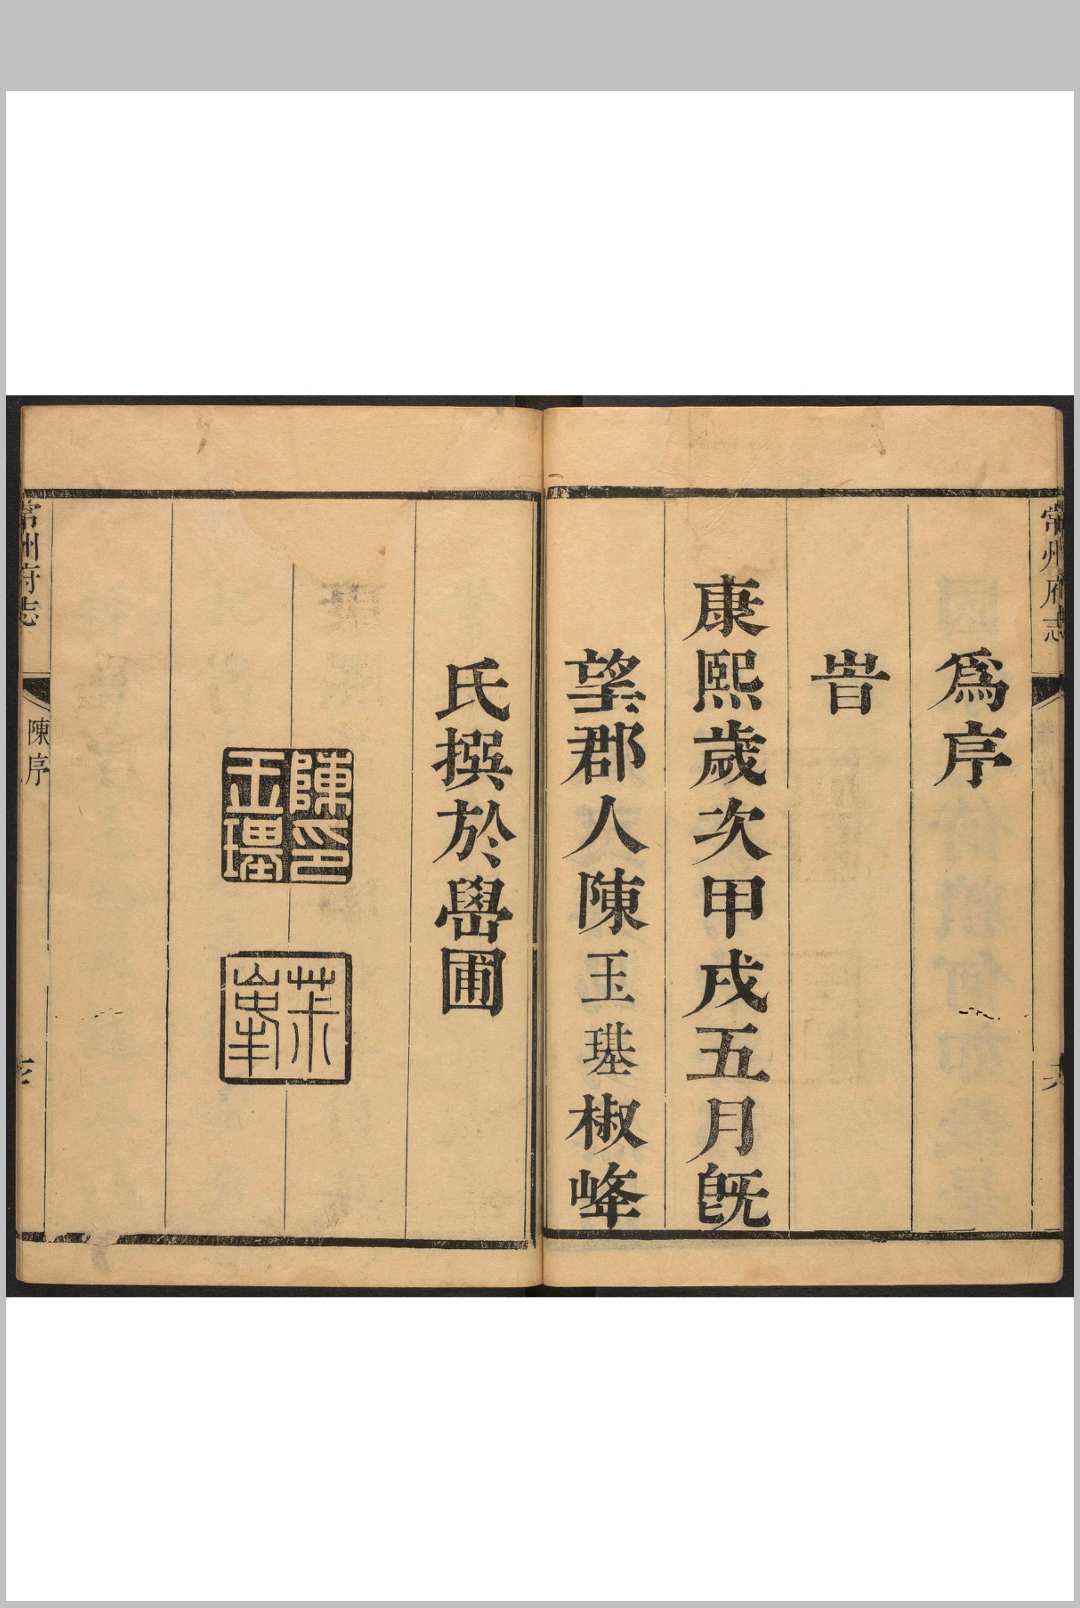 常州府志
爲序
旹
康熙歲次甲戌五月旣
望郡人陳玉璂椒峰
氏撰於嶨圃
陳印
玉璂
茮
峯
常州府志
陳序